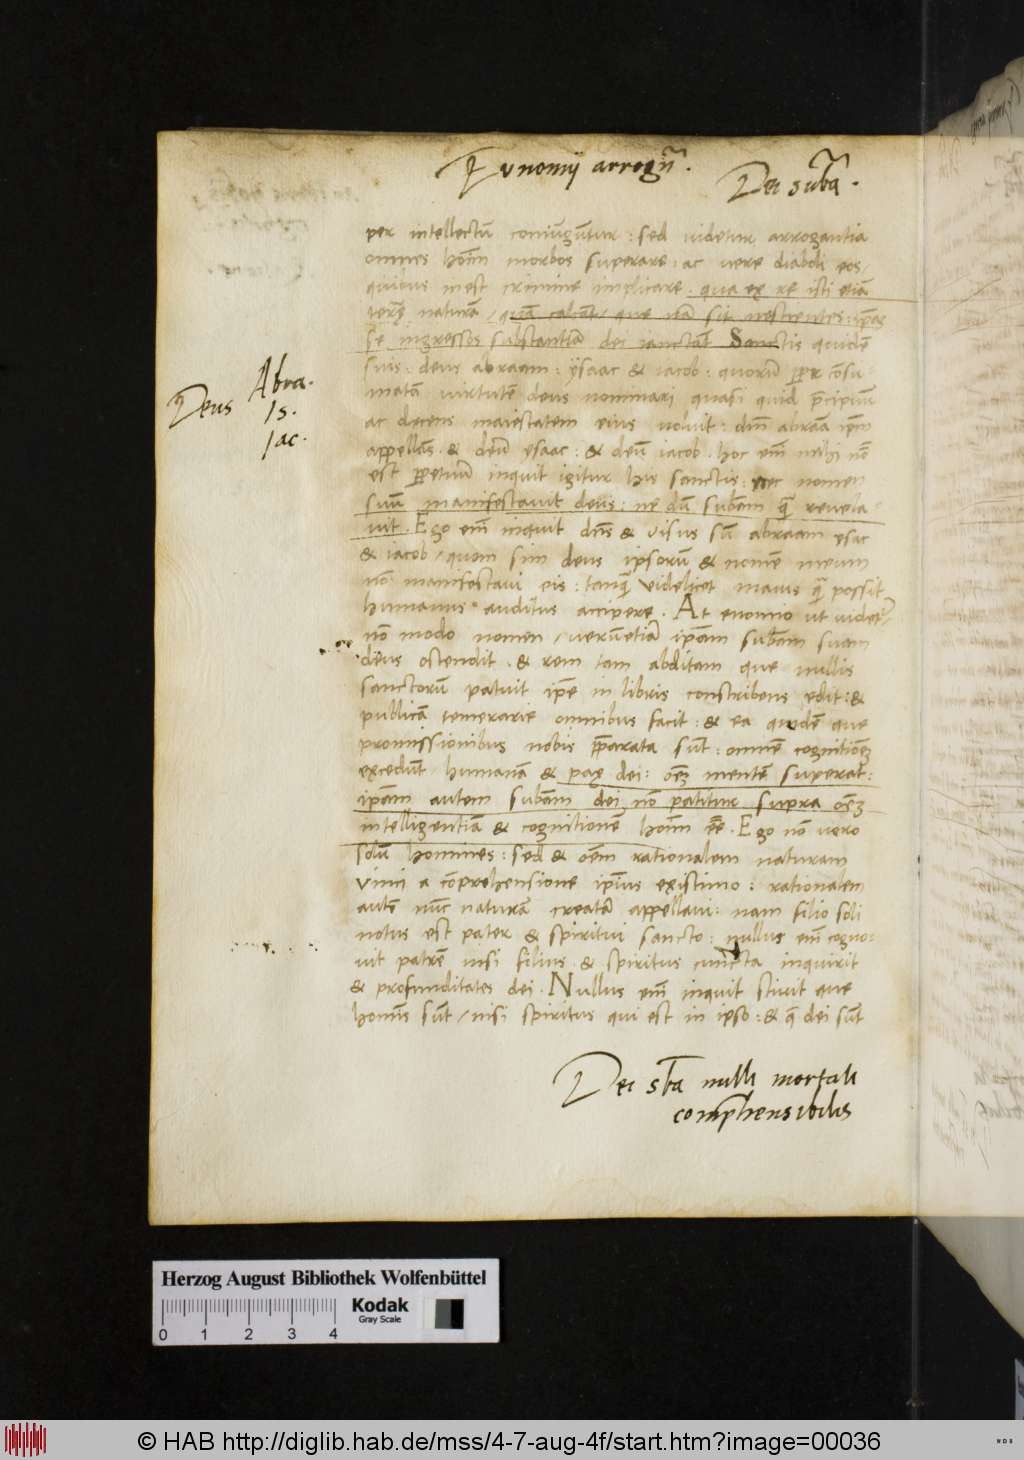 Eunomij arrogñ.
Dei subã.
per intellectũ coniũgũtur: sed videtur arrogantia
omnes hom̃ morbos superare: ac vere diaboli eos/
quibus inest crimine implicare. qua ex re isti etiã
terrę naturã / quã calcãt / que nã sit nescientes: ip̃ar
se ingressos substantiã dei iactãt. Sanctis quidẽ
suis: deus abraam: ysaac & iacob: quorũ p̱p̱r cõsu
matã virtutẽ deus nominari quasi quid p̃cipuũ
ac decens maiestatem eius voluit: dm̃ abraã ip̃m
appellãs. & deũ esaac: & deũ iacob. hoc em̃ mihi nom̃
est p̱petuũ inquit igitur his sanctis: nec nomen
suũ manifestavit deus: ne dũ subãm q̃ revela
vit. Ego em̃ inquit dñs & visus sũ abraam esac
& iacob / quom sim deus ipsorũ & nomẽ meum
nõ manifestavi eis: tanq̃ videlicet maius q̃ possit
humanus auditus accipere. At enomio ut videt̃/
nõ modo nomen / verũetiã ip̃am subãm suam
deus ostendit. & rem tam abditam que nullis
sanctorũ patuit ip̃e in libris conscribens edit: &
publicã temerarie omnibus facit: & ea quidẽ que
promissionibus nobis p̃parata sũt: omnẽ cognitionẽ
excedũt humanã & pax dei: oẽm mentẽ superat:
ip̃am autem subãm dei nõ patitur supra oẽm
intelligentiã & cognitionẽ hom̃ ẽe. Ego nõ vero
solũ homines: sed & oẽm rationalem naturam
vinci a cõprehensione ip̃ius existimo: rationalem
autẽ nũc naturã creatã appellavi: nam filio soli
notus est pater & spiritui sancto: nullus em̃ cogno:
vit patrẽ nisi filius. & spiritus cuncta inquirit
& profunditates dei. Nullus em̃ inquit scivit que
hominis sũt / nisi spiritus qui est in ipso: & q̃ dei sũt
Abra.
Deus Is.
Iac.
Dei sb̃a nulli mortali
comp̃hensibilis
Herzog August Bibliothek Wolfenbüttel
0 1 2 3 4
Kodak
Gray Scale
© HAB http://diglib.hab.de/mss/4-7-aug-4f/start.htm?image=00036